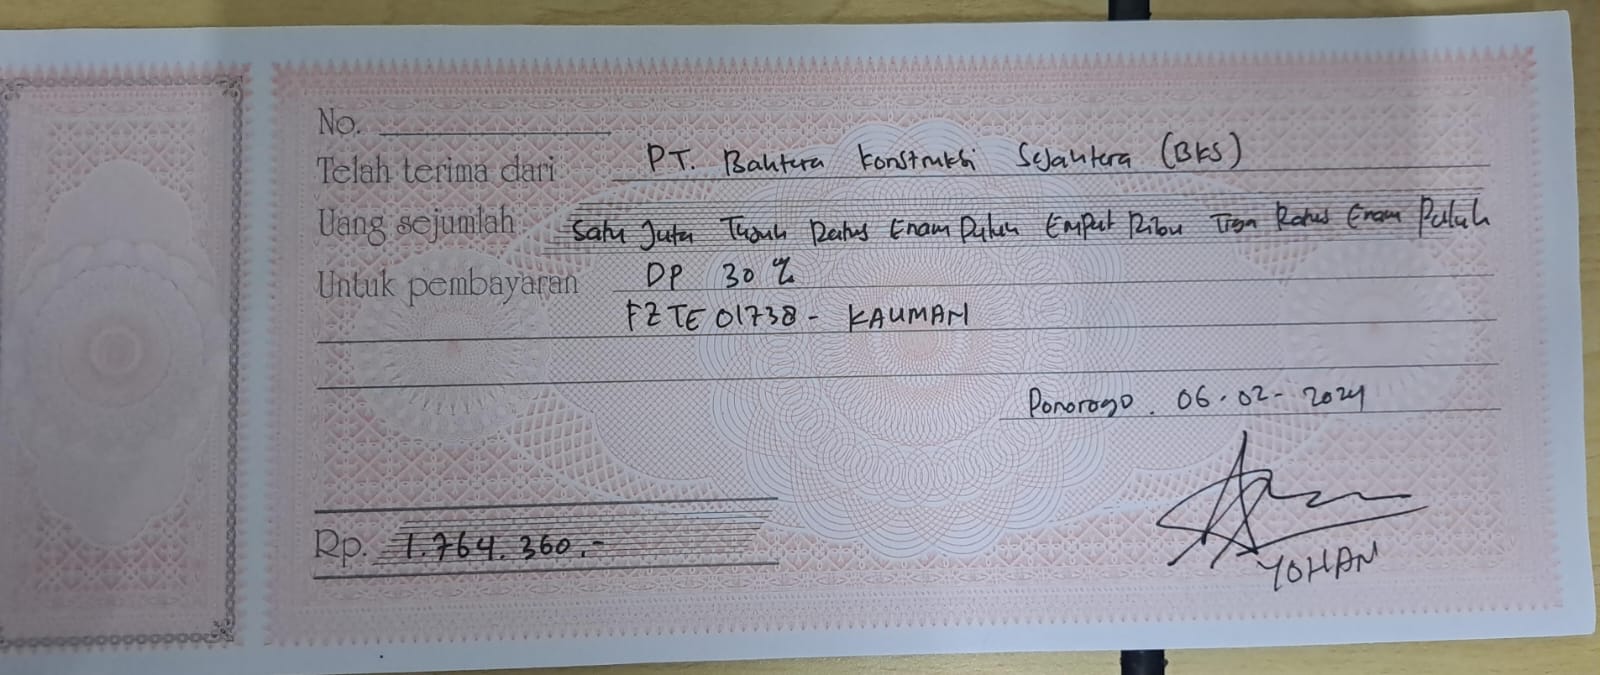 No.
Telah terima dari PT. Bahtera Konstruksi Sejahtera (BKS)
Uang sejumlah Satu Juta Tujuh Ratus Enam Puluh Empat Ribu Tiga Ratus Enam Puluh
Untuk pembayaran DP 30 %
FZTE01738 - KAUMAN
Ponorogo. 06-02-2024
Rp. 1.764.360.-
YOHAN